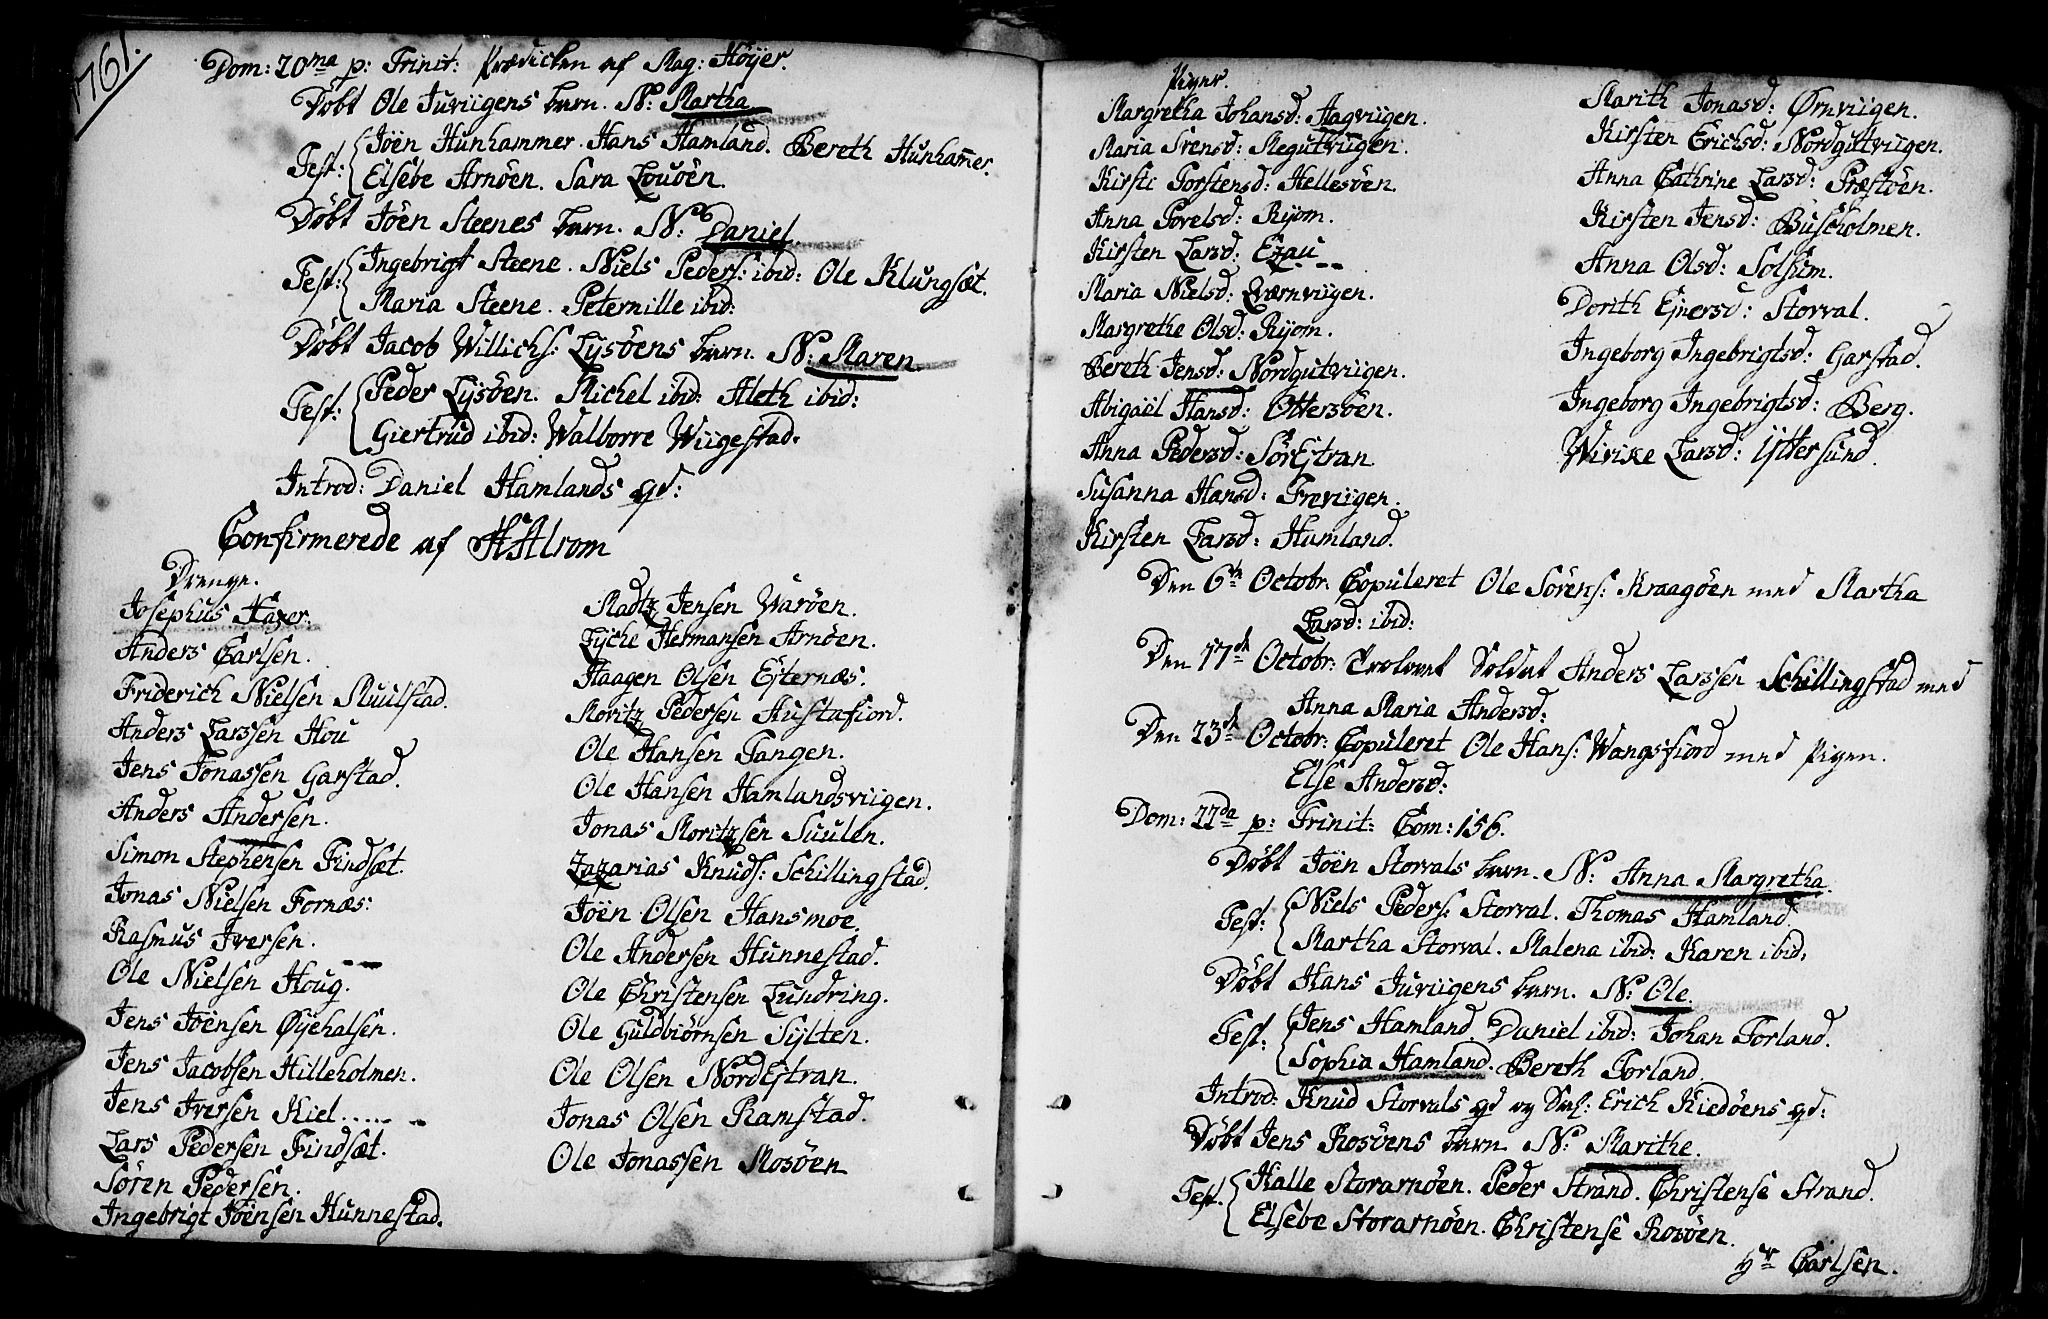 1761.
Dom: 20ma p: Trinit: Prædicken af Mag: Höÿer.
Döbt Ole Juviigens barn. N: Martha
Test: Jöen Hunhammer. Hans Hamland. Bereth Hunham̅er.
Elsebe Arnöen. Sara Louöen.
Döbt Jöen Steenes barn. N: Daniel.
Test: Ingebrigt Steene. Niels Peders: ibid: Ole Klungsæt.
Maria Steene. Peternille ibid:
Döbt Jacob Willichs: Lysöens barn. N: Maren.
Test: Peder Lysöen. Michel ibid: Aleth ibid:
Giertrud ibid: Walborre Wiigestad.
Introd: Daniel Hamlands qd:
Confirmerede af HAlrom
Drenge.
Josephus Haxer.
Anders Carlsen.
Friderich Nielsen Muilstad.
Anders Larssen Hou
Jens Jonassen Garstad.
Anders Andersen.
Simon Stephensen Findsæt.
Jonas Nielsen Fornæs:
Rasmus Iversen.
Ole Nielsen Houg.
Jens Jöensen Öÿehalsen.
Jens Jacobsen Hilleholmen.
Jens Iversen Kiel.....
Lars Pedersen Findsæt.
Sören Pedersen.
Ingebrigt Jöensen Hunnestad.
Madtz Jensen Waröen.
Lyche Hermansen Arnöen.
Haagen Olsen Esternæs.
Moritz Pedersen Hustafiord.
Ole Hansen Tangen.
Ole Hansen Hamlandsviigen.
Jonas Moritzsen Suulen.
Zazarias Knuds: Schillingstad.
Jöen Olsen Hansmoe.
Ole Andersen Hunnestad.
Ole Christensen Lundring.
Ole Guldbiörnsen Sylten.
Ole Olsen NordEstran.
Jonas Olsen Ramstad.
Ole Jonassen Mosöen
Piger.
Margretha Johansd: Hagviigen.
Maria Svensd: Megutviigen.
Kirsti Torstensd: Hellesöen.
Anna Povelsd: Ryom.
Kirsten Larsd: Ezau
Maria Nielsd: Qværnviigen.
Margrethe Olsd: Ryom.
Bereth Jensd: Nordgutviigen.
Abigaël Hansd: Ottersöen.
Anna Pedersd: SörEstran
Susanna Hansd: Freviigen.
Kirsten Larsd: Humland.
Marith Jonasd: Ørnviigen.
Kirsten Erichsd: Nordgutviigen.
Anna Cathrine Larsd: Præstöen.
Kirsten Jensd: Buskholmen.
Anna Olsd: Solhim.
Dorith Ejnersd: Storval.
Ingeborg Ingebrigtsd: Garstad.
Ingeborg Ingebrigtsd: Berg.
Wivike Larsd: Ÿttersund.
Den 6te Octobr: Copuleret Ole Sörens: Kraagöen med Martha
Larsd: ibid:
Den 17de Octobr: Trolovet Soldat Anders Larssen Schillingstad med
Anna Maria Andersd:
Den 23de Octobr: Copuleret Ole Hans: Wangsfiord med Pigen.
Else Andersd:
Dom: 22da p: Trinit: Com: 156.
Döbt Jöen Storvals barn. N: Anna Margretha.
Test: Niels Peders: Storval. Thomas Hamland.
Martha Storval. Malena ibid: Karen ibid.
Döbt Hans Juviigens barn. N: Ole.
Test: Jens Hamland. Daniel ibid: Johan Forland.
Sophia Hamland. Bereth Forland.
Introd: Knud Storvals qd og Erich Kiedöens qd:
Döbt Jens Rosöens barn N: Marithe.
Test: Halle Storarnöen. Peder Strand. Christense Strand.
Elsebe Storarnöen. Christense Rosöen.
Hr Carlsen.